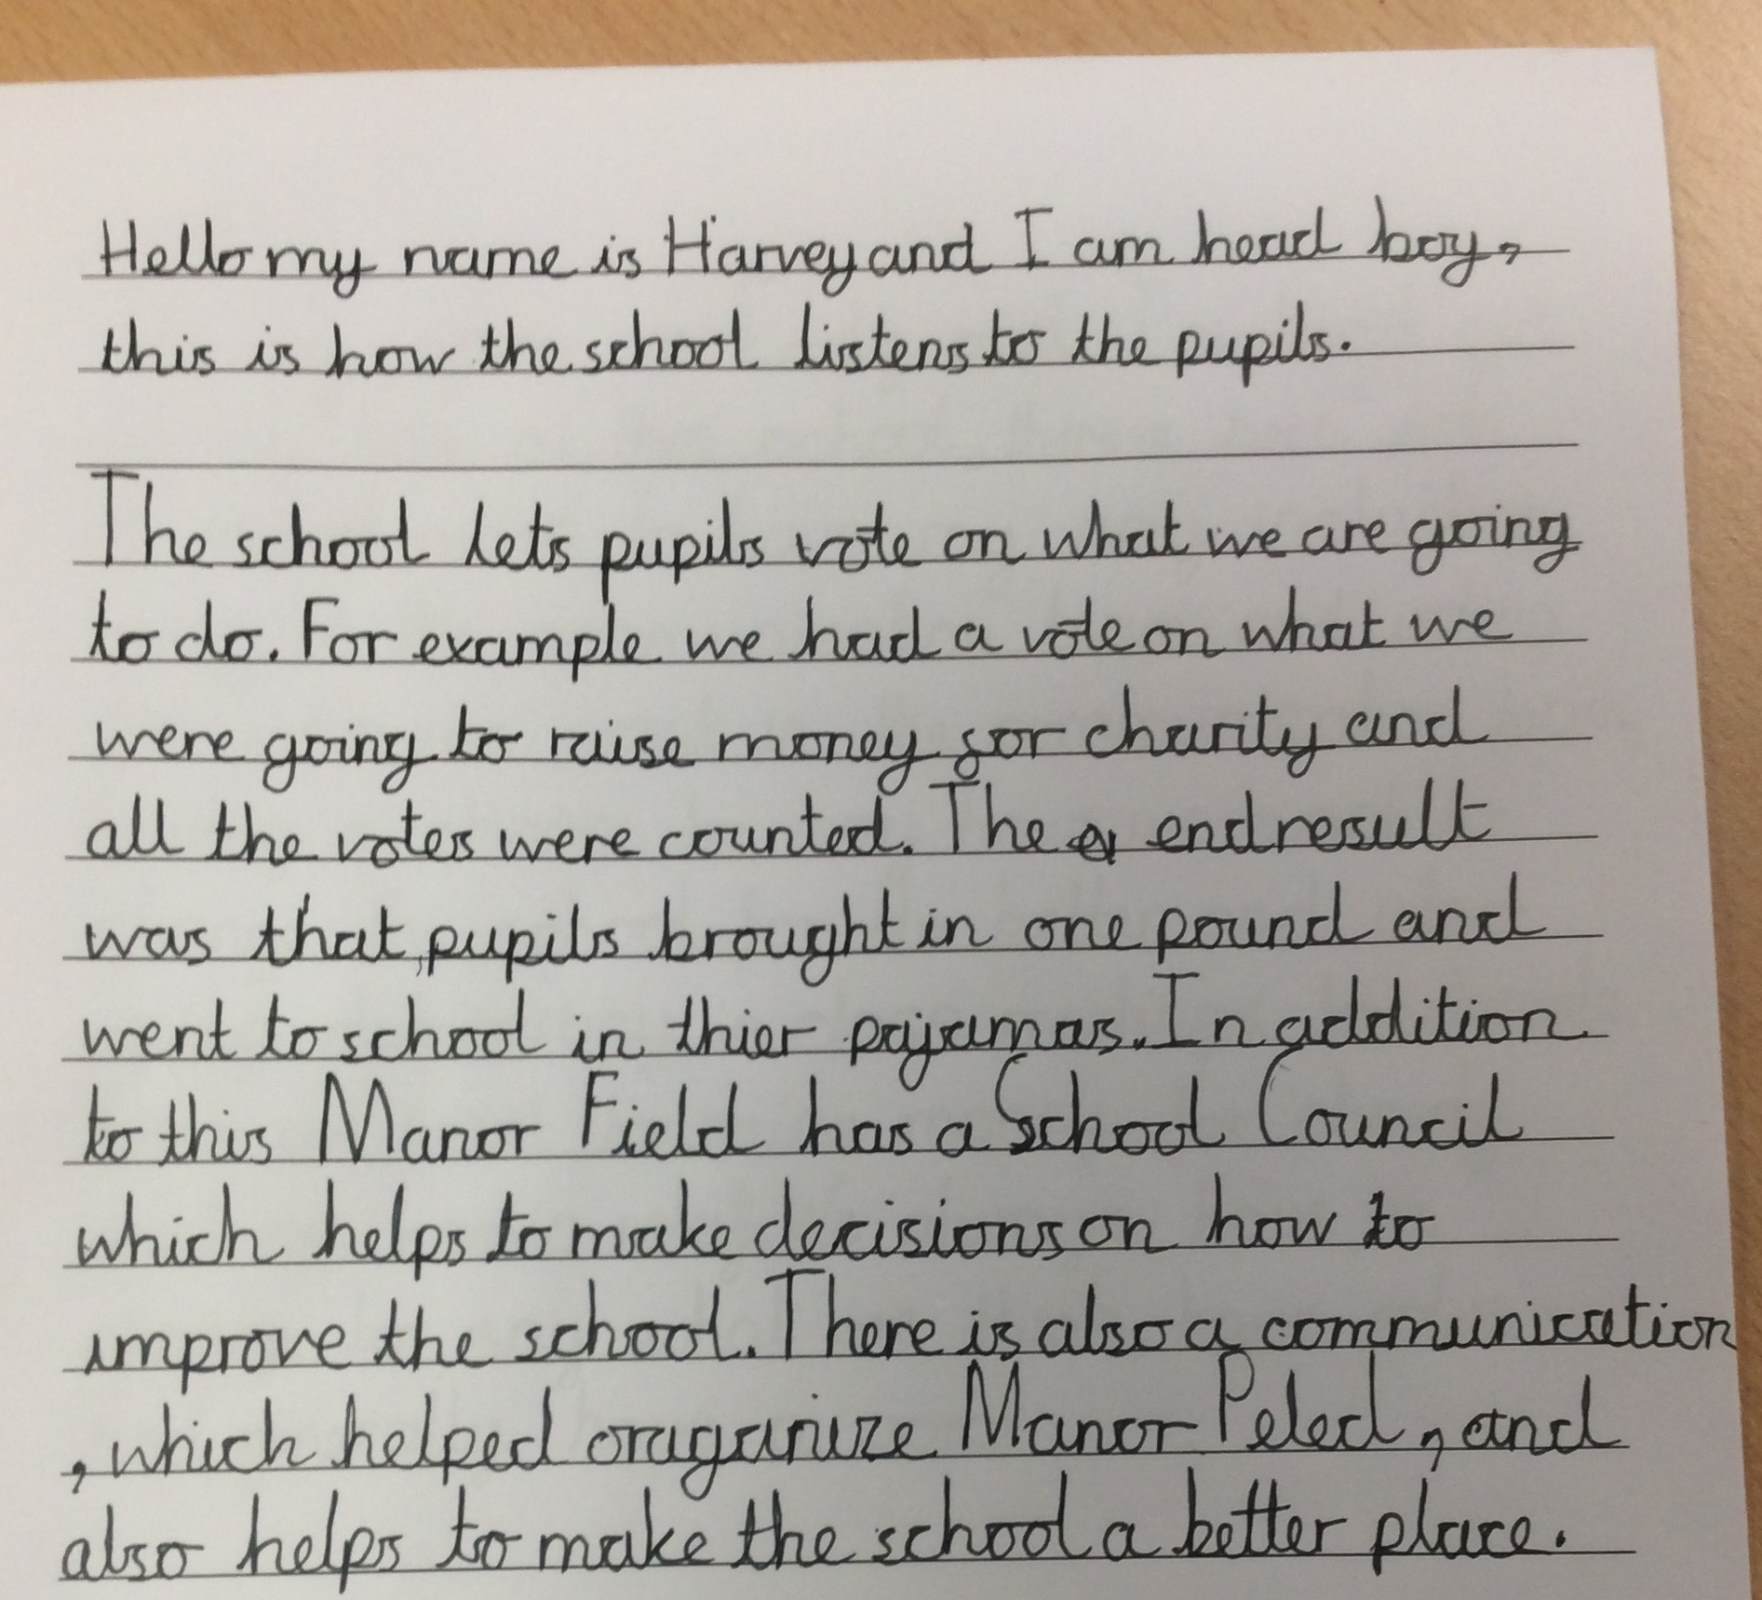 Hello my name is Harvey and I am head boy,
this is how the school listens to the pupils.
The school lets pupils vote on what we are going
to do. For example we had a vote on what we
were going to raise money for charity and
all the votes were counted. The end result
was that pupils brought in one pound and
went to school in thier pajamas. In addition
to this Manor Field has a School Council
which helps to make decisions on how to
improve the school. There is also a communication
, which helped oraganize Manor Peled, and
also helps to make the school a better place.